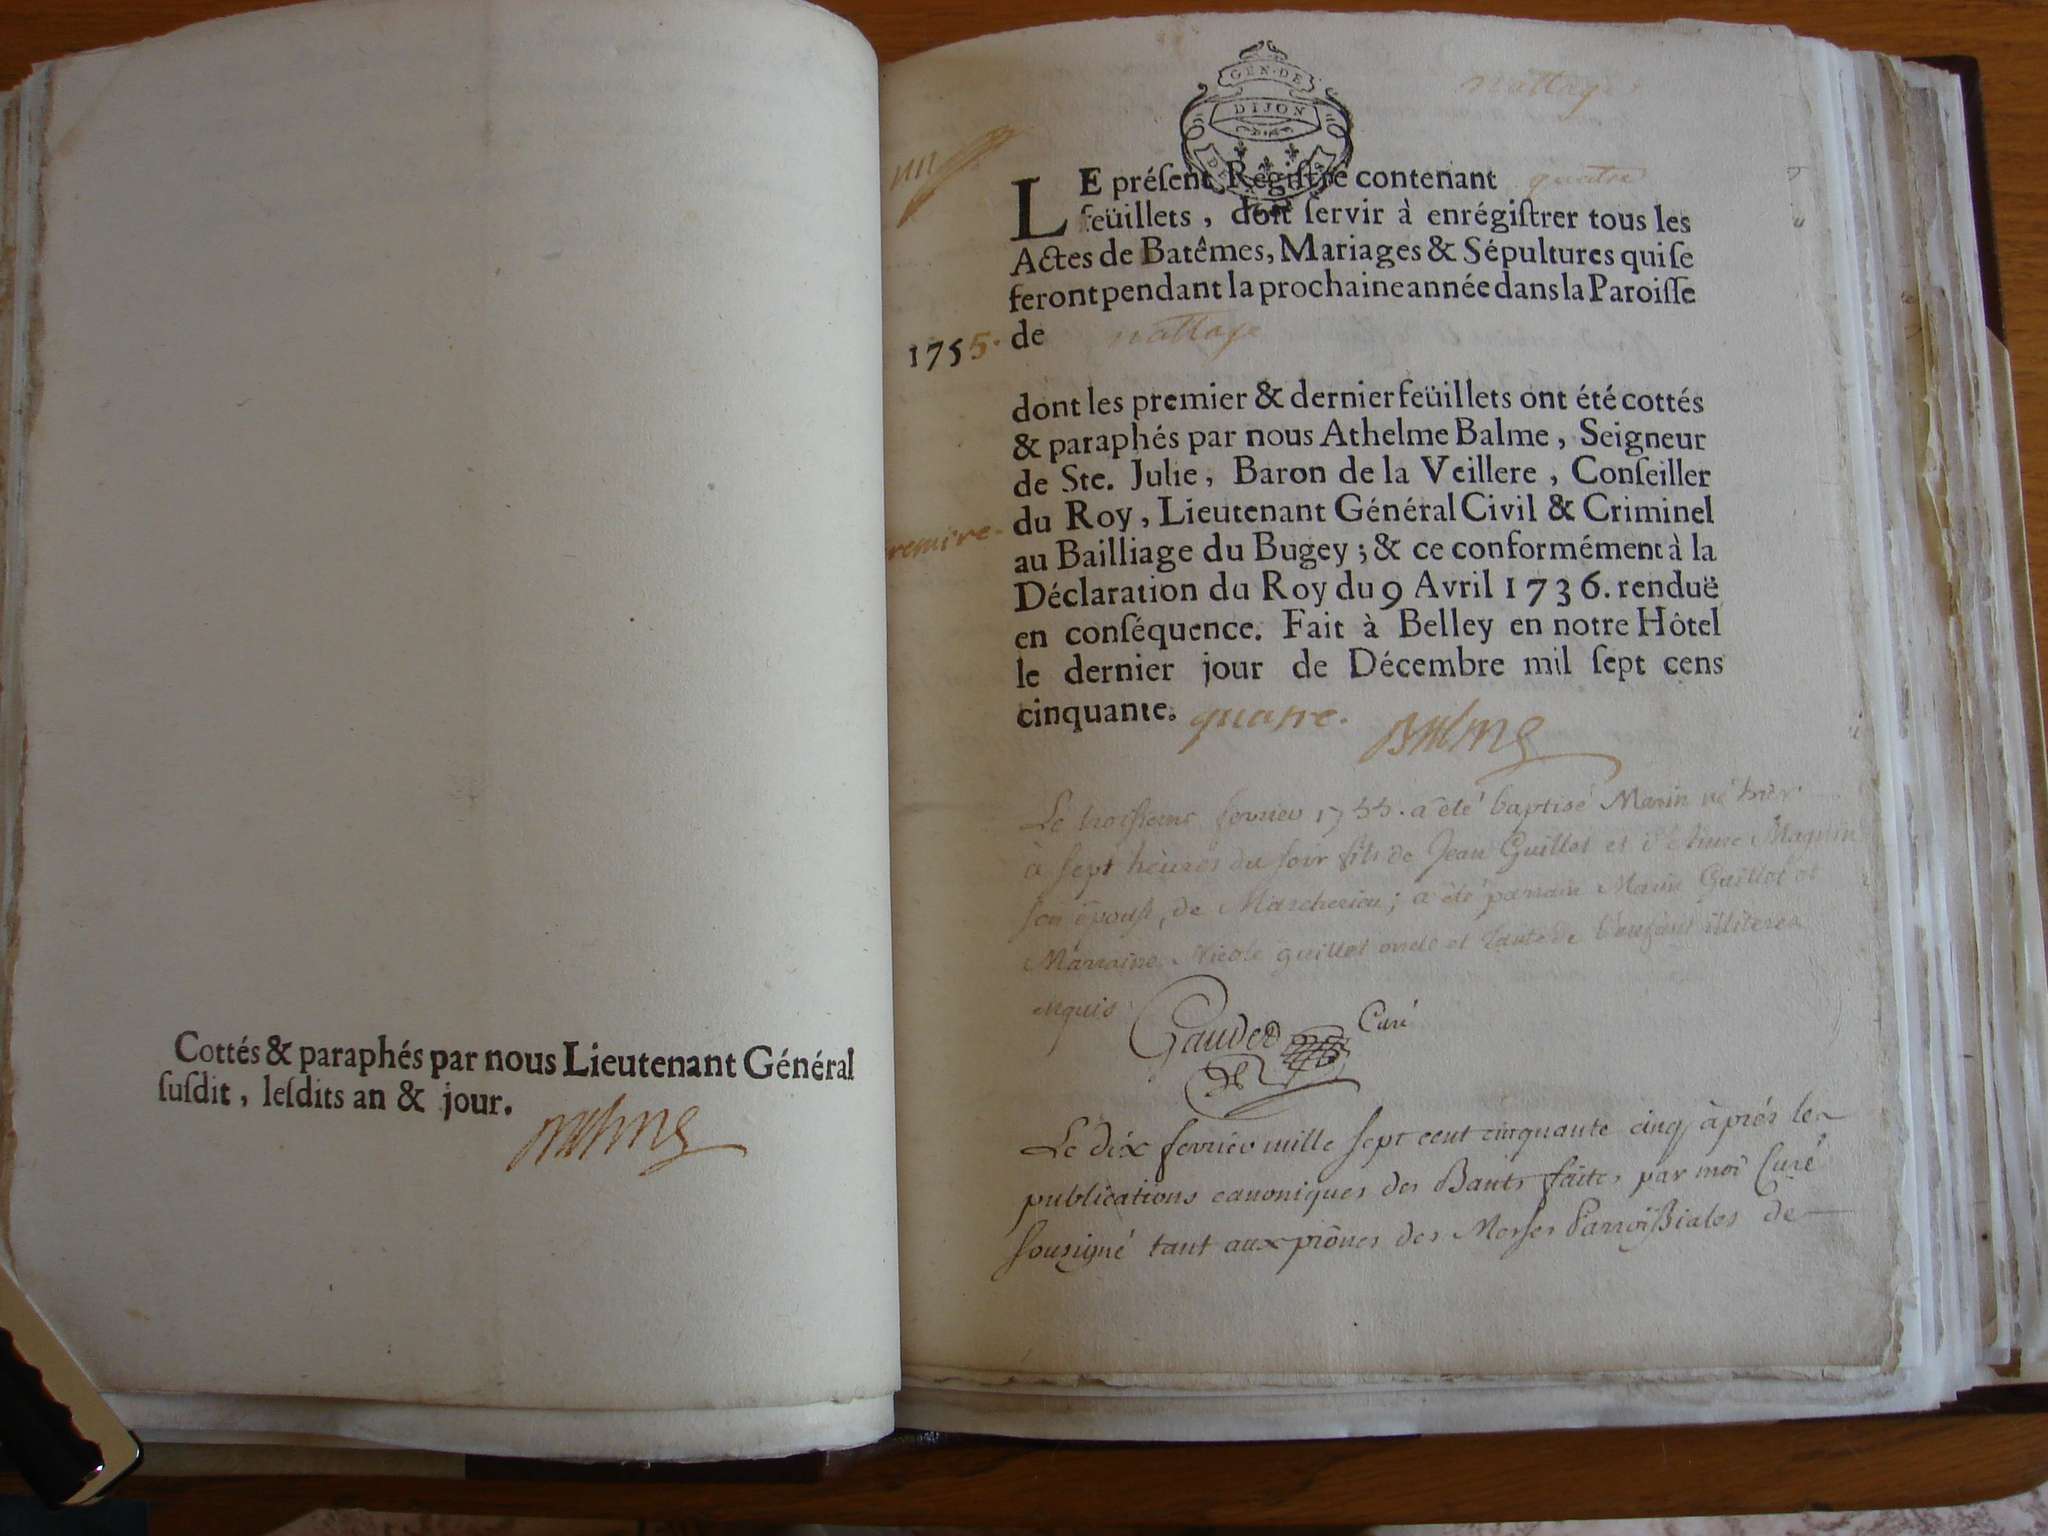 Cottés & paraphés par nous Lieutenant Général
ſuſdit, leſdits an & jour.
Balme
GEN·DE
DIJON
nattage
LE préſent Regiſtre contenant quatre
feüillets, doit ſervir à enrégiſtrer tous les
Actes de Batêmes, Mariages & Sépultures qui ſe
feront pendant la prochaine année dans la Paroiſſe
1755. de nattage
dont les premier & dernier feüillets ont été cottés
& paraphés par nous Athelme Balme, Seigneur
de Ste. Julie, Baron de la Veillere, Conſeiller
remire. du Roy, Lieutenant Général Civil & Criminel
au Bailliage du Bugey; & ce conformément à la
Déclaration du Roy du 9 Avril 1736. renduë
en conſéquence. Fait à Belley en notre Hôtel
le dernier jour de Décembre mil ſept cens
cinquante. quatre. Balme
Le troiſieme fevrier 1755. a été baptisé Marin né hièr
à ſept heures du ſoir fils de Jean Guillet et d'Anne Magnin
ſon épouſe, de ; a été parrain Marin Guillet et
Marraine Nicole guillet oncle et tante de l'enfant illiteres
enquis
Gaudet Curé
Le dix fevrier mille ſept cent cinquante cinq àprés les
publications canoniques des Bants faites par moi Curé
ſousigné tant aux prônes des Meſſes Parroiſſiales de